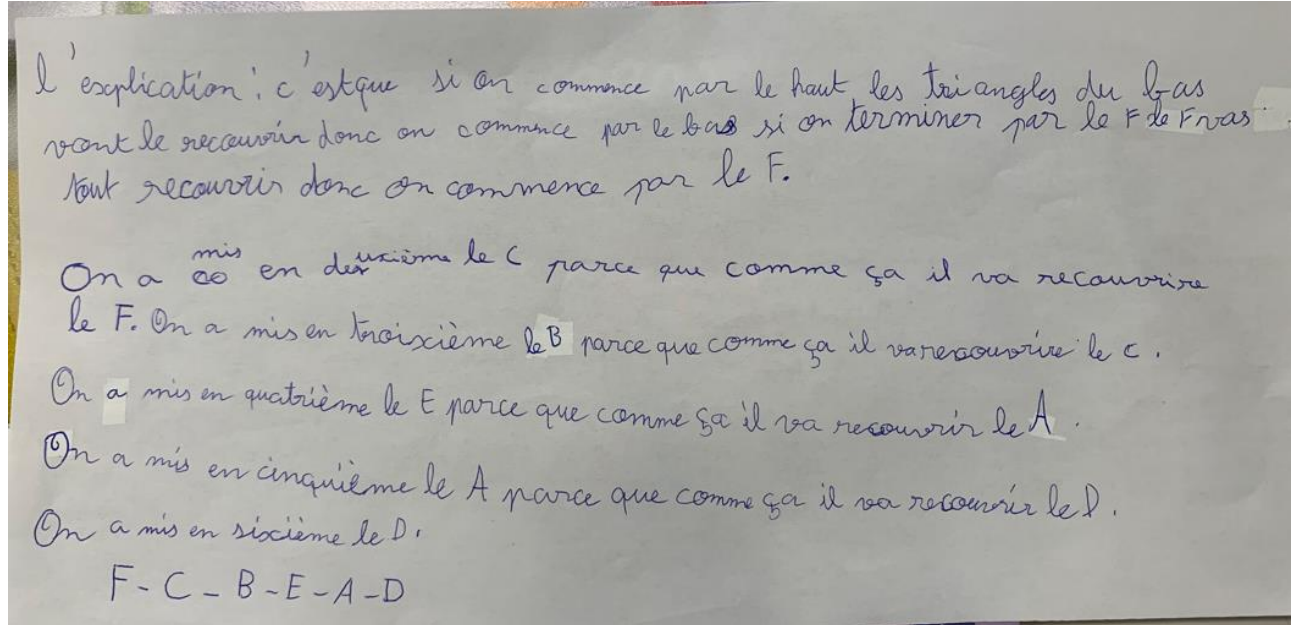 l'explication : c'estque si on commence par le haut les triangles du bas
vont le recouvrir donc on commence par le bas si on terminer par le F de F vas
tout recouvrir donc on commence par le F.
On a mis en deuxième le C parce que comme ça il va recouvrire
le F. On a mis en troixième le B parce que comme ça il va recouvrire le c.
On a mis en quatrième le E parce que comme ça il va recouvrir le A.
On a mis en cinquième le A parce que comme ça il va recouvrir le D.
On a mis en sixième le D.
F-C-B-E-A-D